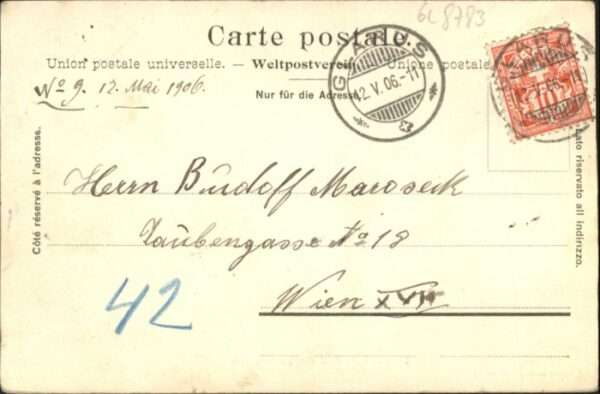 GL 8783
Carte postale.
Union postale universelle. — Weltpostverein. — Unione postale
Nur für die Adresse
No 9. 12. Mai 1906.
GLARUS
12.V.06.-11
10
Côté réservé à l'adresse.
Lato riservato all indirizzo.
Herrn Rudolf Maroseck
Taubengasse No 18
Wien XVII
42